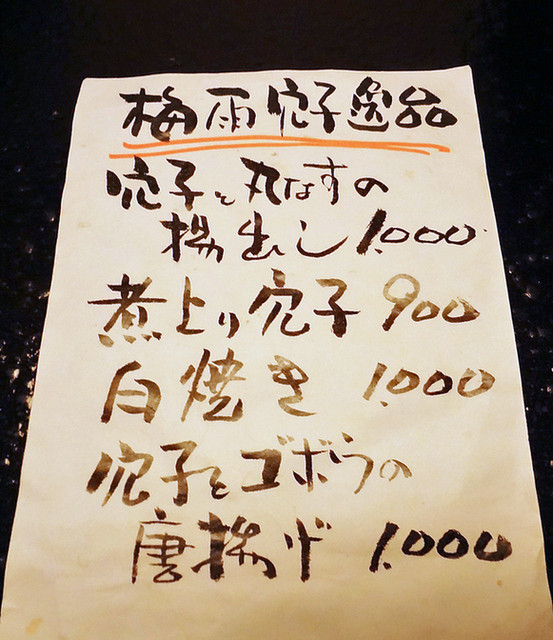 梅雨穴子逸品
穴子と丸なすの
揚出し 1.000
煮上り穴子 900
白焼き 1.000
穴子とゴボウの
唐揚げ 1.000